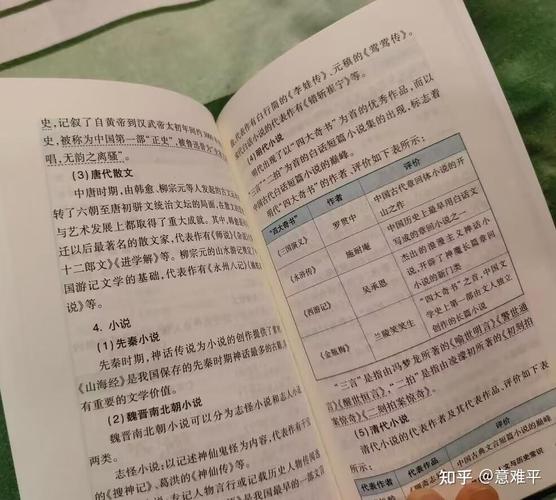 史，记叙了自黄帝到汉武帝太初年间约3000
史，被称为中国第一部“正史”，被鲁迅誉为
唱，无韵之离骚”。
(3)唐代散文
中唐时期，由韩愈、柳宗元等人发起的古文运
转了六朝至唐初骈文统治文坛的局面，在散文
与艺术发展上都取得了重大成就。其中，韩愈
迁以后最著名的散文家，代表作有《师说》《杂
十二郎文》《进学解》等。柳宗元的山水游记奠
国游记文学的基础，代表作有《永州八记》
说》等。
4. 小说
(1)先秦小说
先秦时期，神话传说为小说的创作提供了
《山海经》是我国保存的先秦时期神话最多的古籍，
有重要的文学价值。
(2)魏晋南北朝小说
魏晋南北朝小说可以分为志怪小说和志人小
两类。
志怪小说：以记述神仙鬼怪为内容，代表作有干
的《搜神记》、葛洪的《神仙传》等。
志人小说：专记人物言行或记载历史人物传闻
是我国最早的一部文
代表作有白行简的《李娃传》、元稹的《莺莺传》。
小说的代表作有《错斩崔宁》等。
(4)明代小说
明代出现了以“四大奇书”为首的优秀作品，而以
“三言”“二拍”为首的白话短篇小说集的出现，标志着
古代白话短篇小说的巅峰。
明代“四大奇书”的作者、评价如下表所示：
“四大奇书” 作者 评价
《三国演义》 罗贯中 中国古代章回体小说的开
山之作
《水浒传》 施耐庵 中国历史上最早用白话文
写成的章回小说之一
《西游记》 吴承恩 杰出的浪漫主义神话小
说，开辟了神魔长篇章回
小说的新门类
《金瓶梅》 兰陵笑笑生 “四大奇书”之首，中国文
学史上第一部由文人独立
创作的长篇小说
“三言”是指由冯梦龙所著的《喻世明言》《警世通
言》《醒世恒言》，“二拍”是指由凌濛初所著的《初刻拍
案惊奇》《二刻拍案惊奇》。
(5)清代小说
清代小说的代表作者及其代表作品，评价如下表
所示：
代表作者 代表作品 评价
中国古典文言短篇小说的巅
文学与历史常识
知乎 @意难平